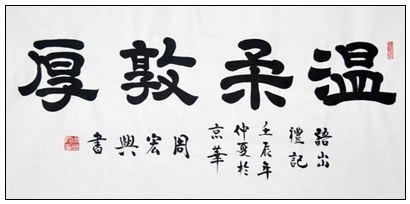 温柔敦厚
語出
禮記
壬辰年
仲夏於
京華
周宏興書